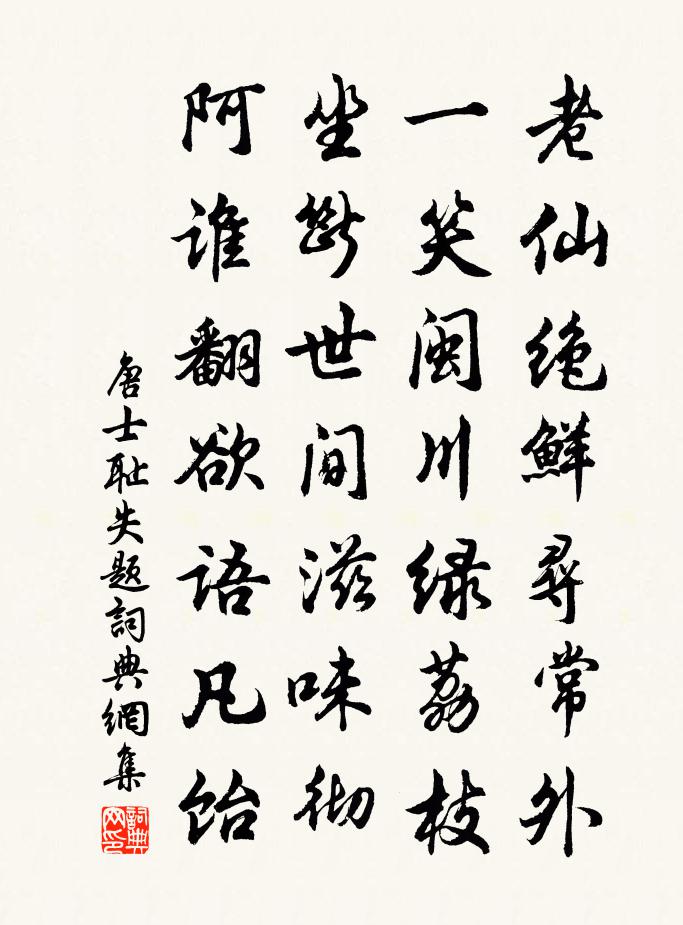 老仙绝鲜尋常外
一笑闽川绿荔枝
坐斷世间滋味彻
阿谁翻欲语凡饴
唐士耻失题詞典網集
詞典网印